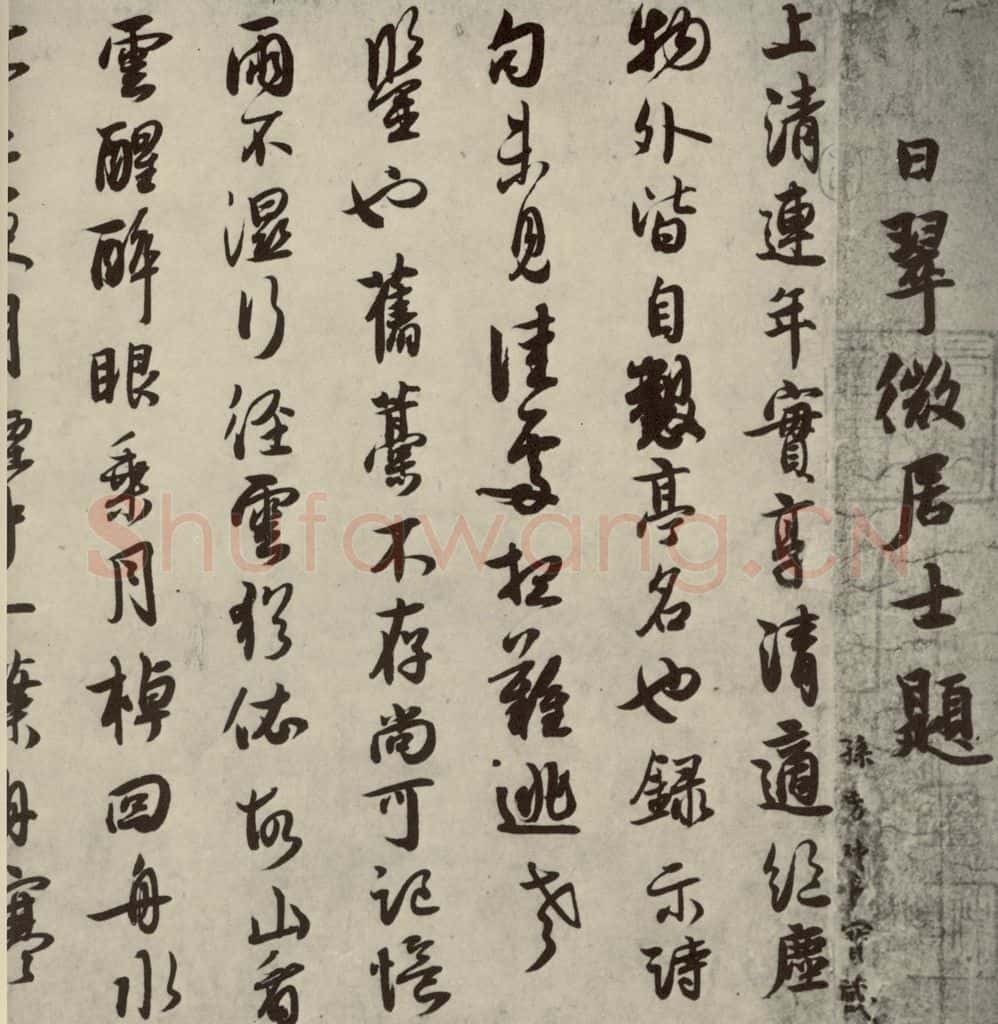 日翠微居士題
孫
上清連年實享清適絕塵
物外皆自製亭名也錄示詩
句未見佳處 難逃老
鑒也舊藁不存尚可記憶
雨不濕行徑雲猶依故山看
雲醒醉眼乘月棹回舟水
月 一葉舟寒
Shufawang.CN